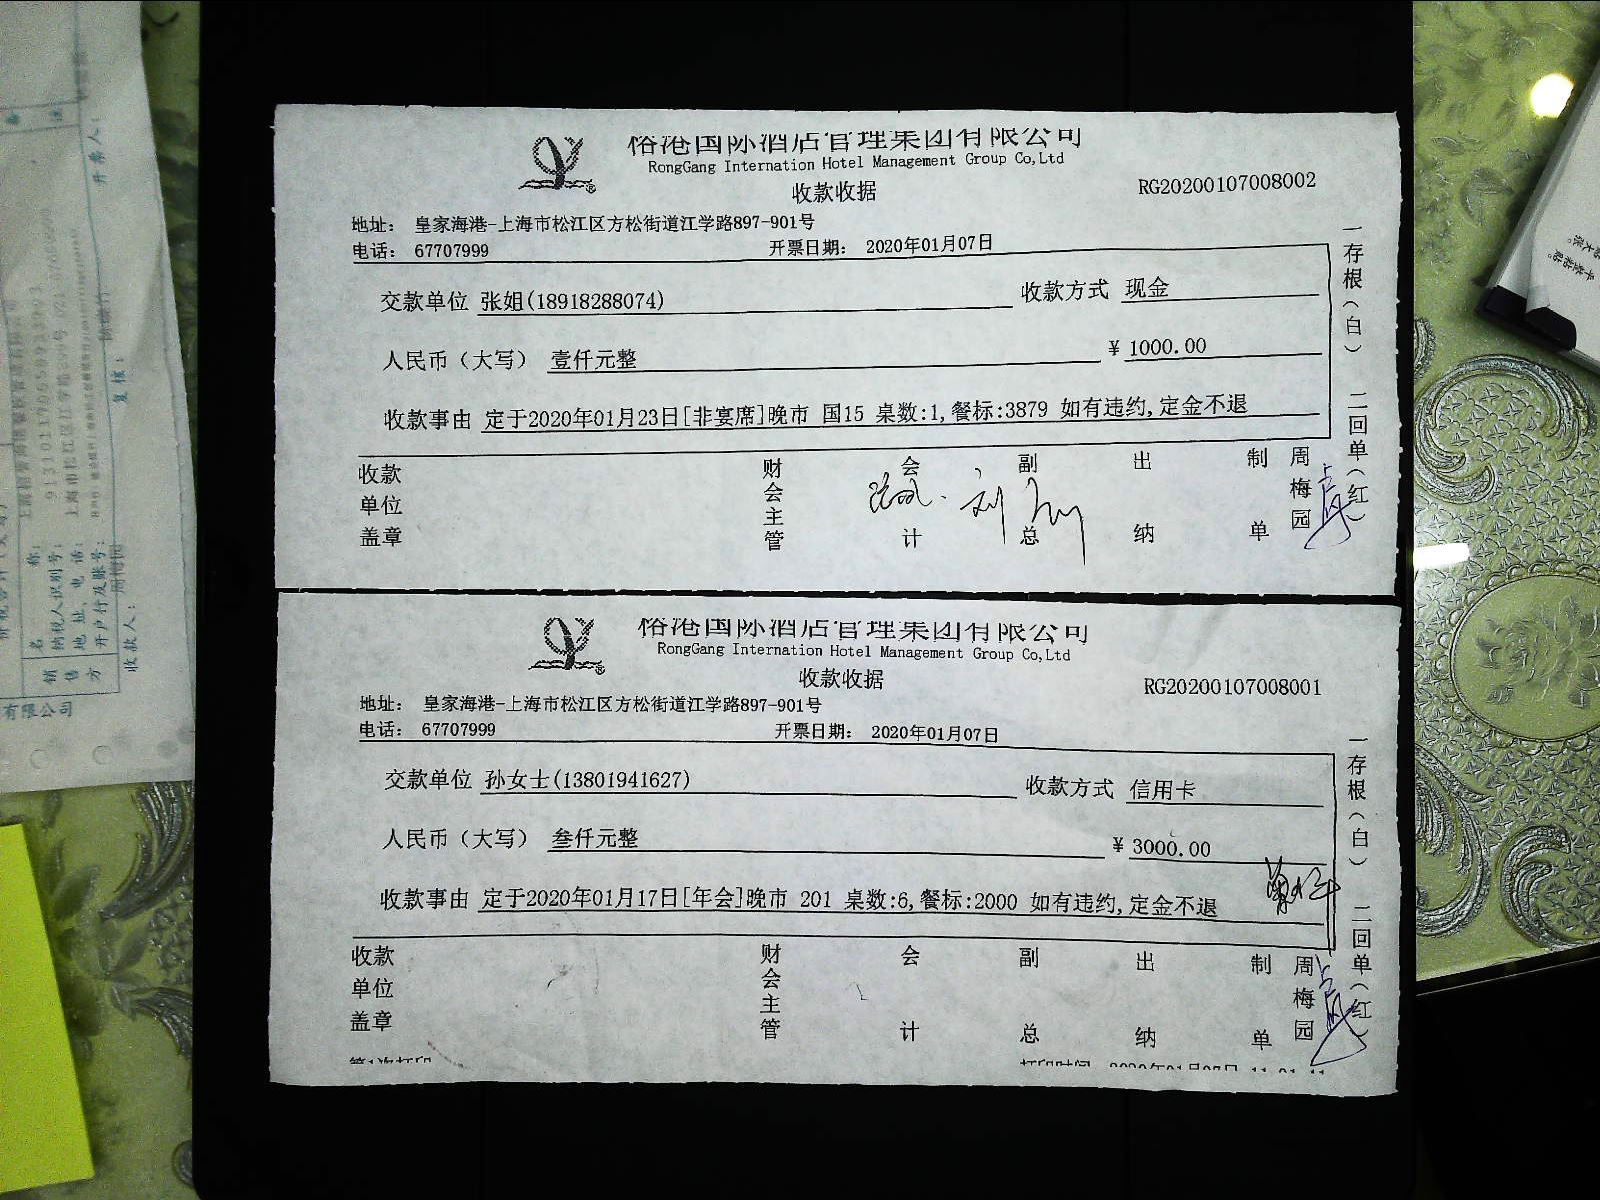 裕港国际酒店管理集团有限公司
RongGang Internation Hotel Management Group Co,Ltd
收款收据
RG20200107008002
地址： 皇家海港-上海市松江区方松街道江学路897-901号
电话： 67707999 开票日期： 2020年01月07日
交款单位 张姐(18918288074) 收款方式 现金
人民币（大写） 壹仟元整 ¥ 1000.00
收款事由 定于2020年01月23日[非宴席]晚市 国15 桌数:1,餐标:3879 如有违约,定金不退
收款单位盖章 财会主管 会计 副总 出纳 制单 周梅园
一存根（白） 二回单（红）
裕港国际酒店管理集团有限公司
RongGang Internation Hotel Management Group Co,Ltd
收款收据
RG20200107008001
地址： 皇家海港-上海市松江区方松街道江学路897-901号
电话： 67707999 开票日期： 2020年01月07日
交款单位 孙女士(13801941627) 收款方式 信用卡
人民币（大写） 叁仟元整 ¥ 3000.00
收款事由 定于2020年01月17日[年会]晚市 201 桌数:6,餐标:2000 如有违约,定金不退
收款单位盖章 财会主管 会计 副总 出纳 制单 周梅园
一存根（白） 二回单（红）
第1次打印 打印时间 2020年01月07日
销售方
名 称：
纳税人识别号：
地 址、电 话：
开户行及账号：
收款人：
复核：
开票人：
有限公司